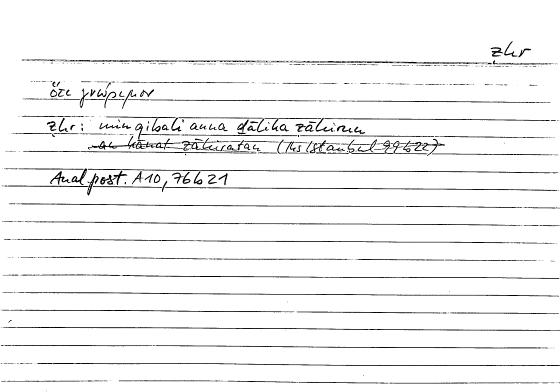 ẓhr
ὅτι γνώριμον
ẓhr: min qibali anna ḏālika ẓāhirun
au kānat ẓāhiratan (Hs Istanbul 99b22)
Anal. post. A10, 76b21